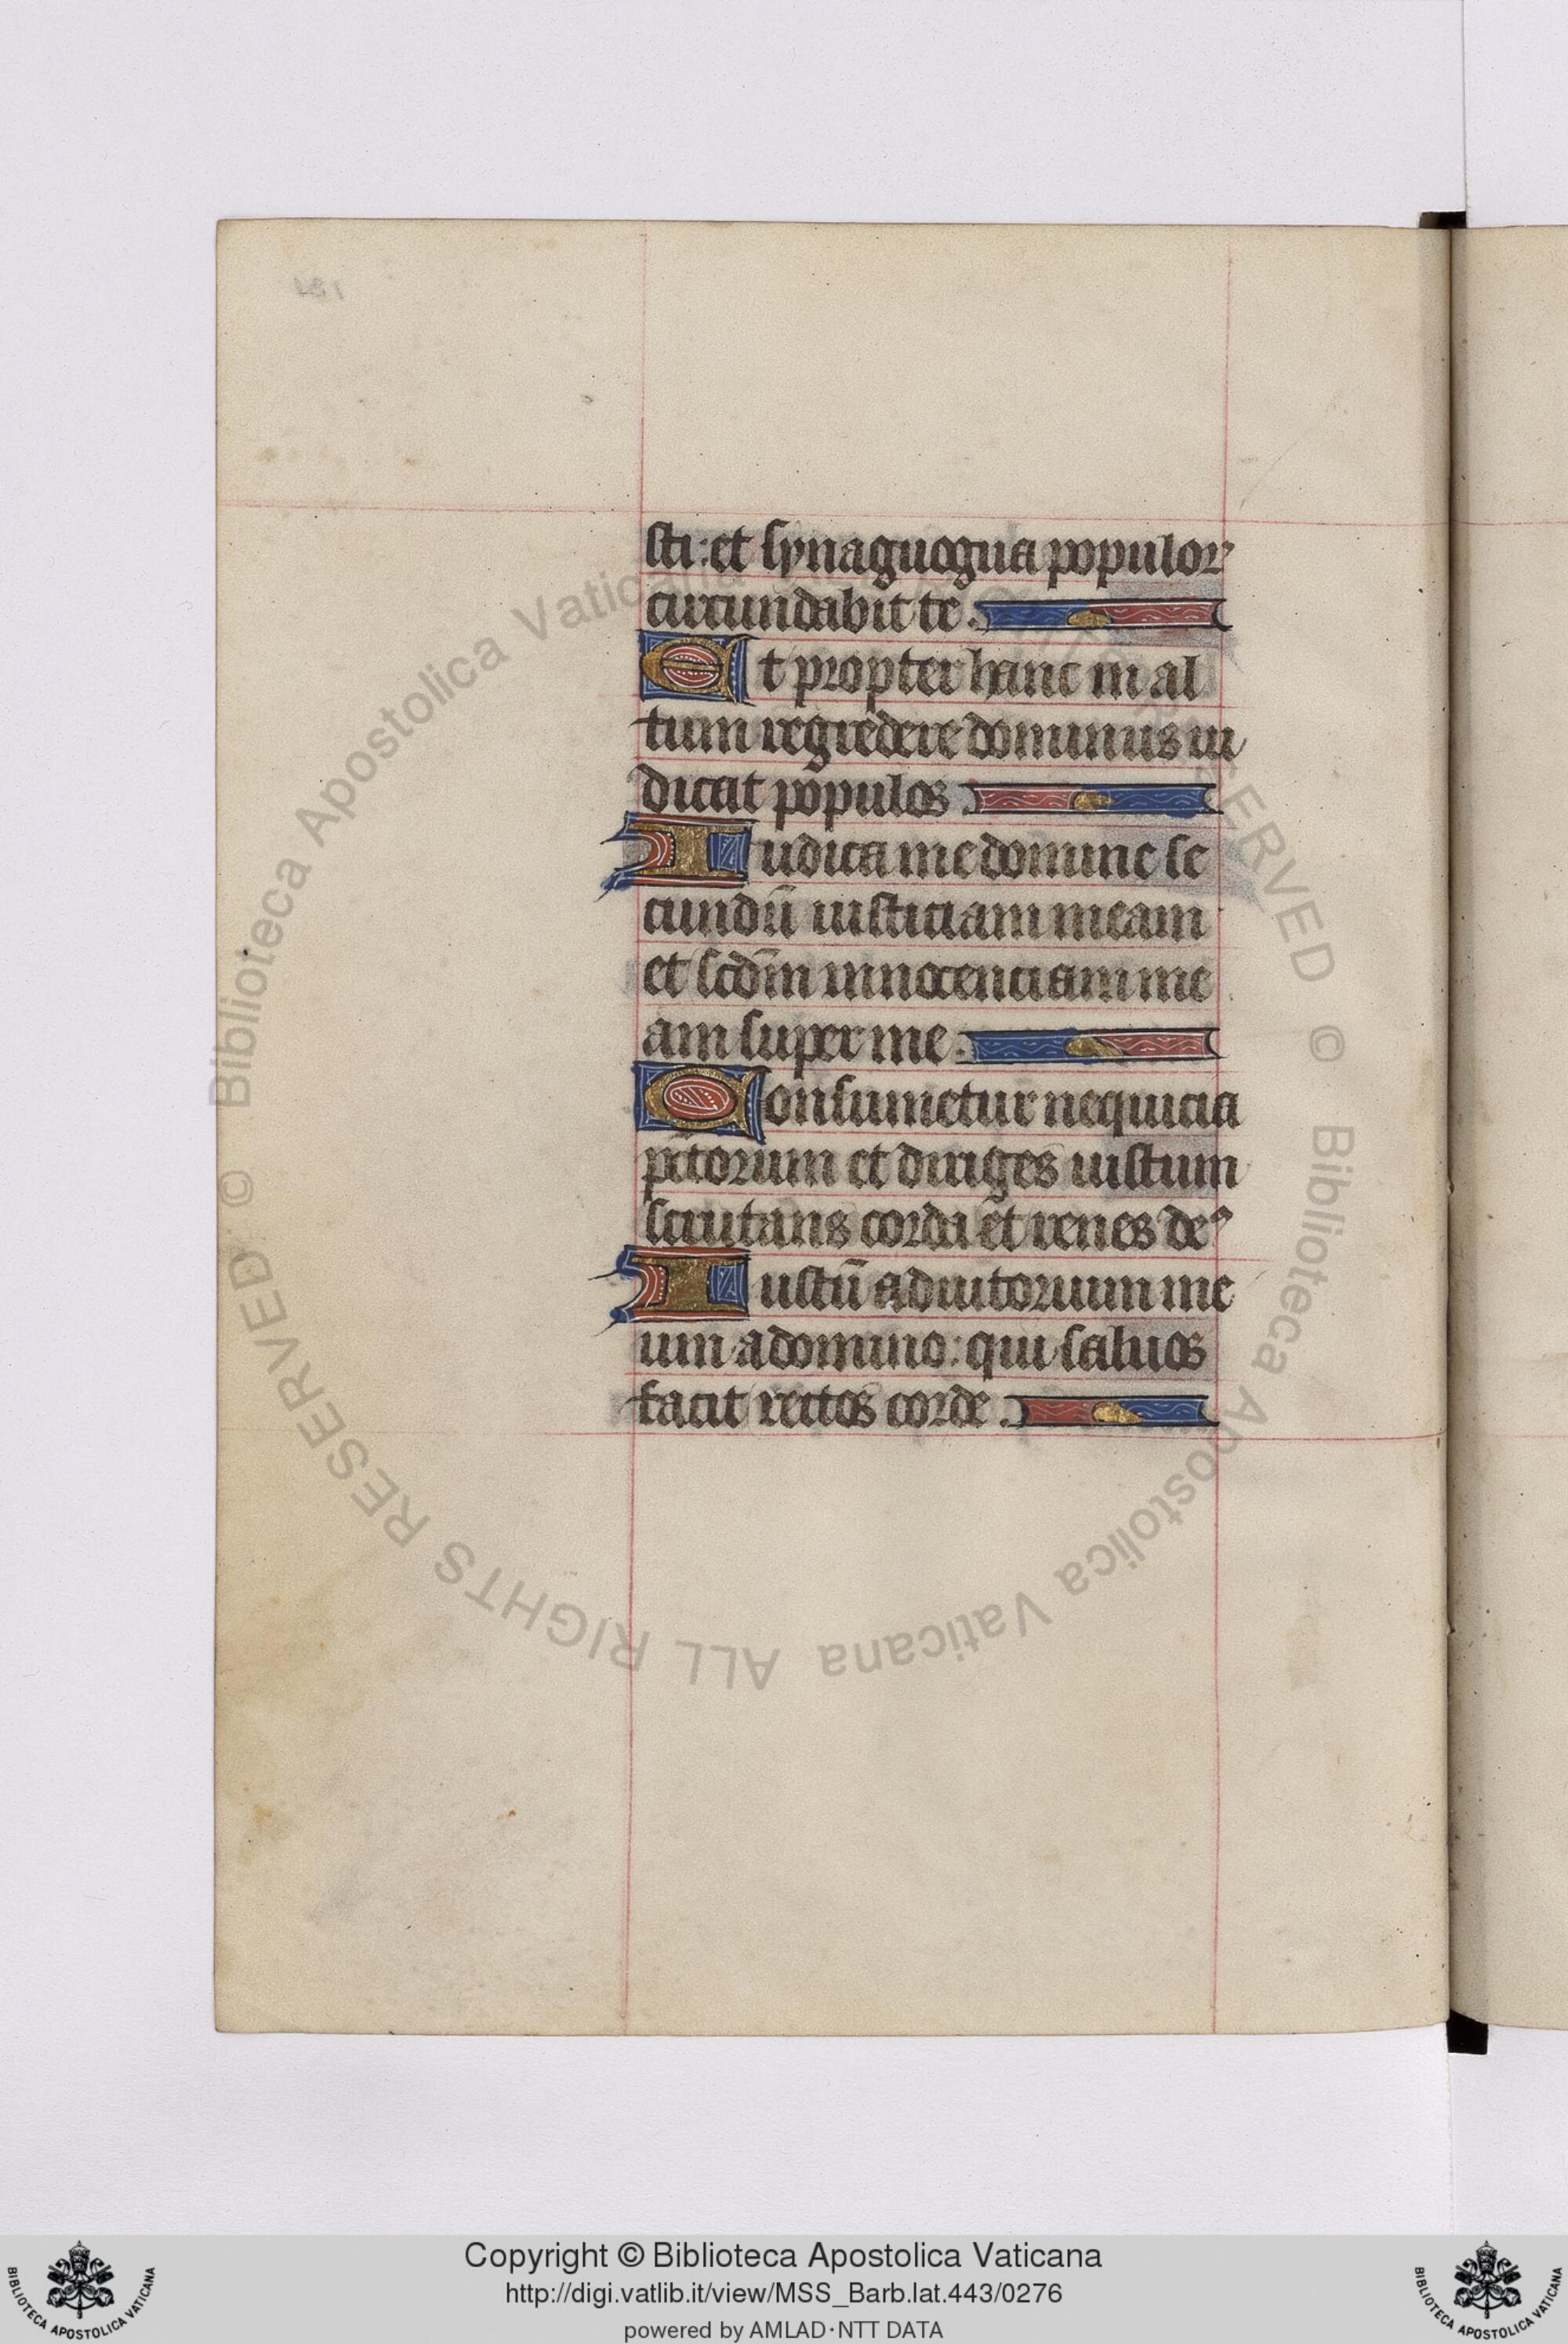 sti: et synaguogua populor
circundabit te.
Et propter hanc in al
tum regredere dominus iu
dicat populos
Iudica me domine se
cundū iusticiam meam
et scdm̄ innocenciam me
am super me.
Consumetur nequicia
pctorum et diriges iustum
scrutans corda et renes deꝰ
Iustū adiutorium me
um a domino: qui saluos
facit rectos corde.
© Biblioteca Apostolica Vaticana ALL RIGHTS RESERVED
© Biblioteca Apostolica Vaticana ALL RIGHTS RESERVED
Copyright © Biblioteca Apostolica Vaticana
http://digi.vatlib.it/view/MSS_Barb.lat.443/0276
powered by AMLAD·NTT DATA
BIBLIOTECA APOSTOLICA VATICANA
BIBLIOTECA APOSTOLICA VATICANA